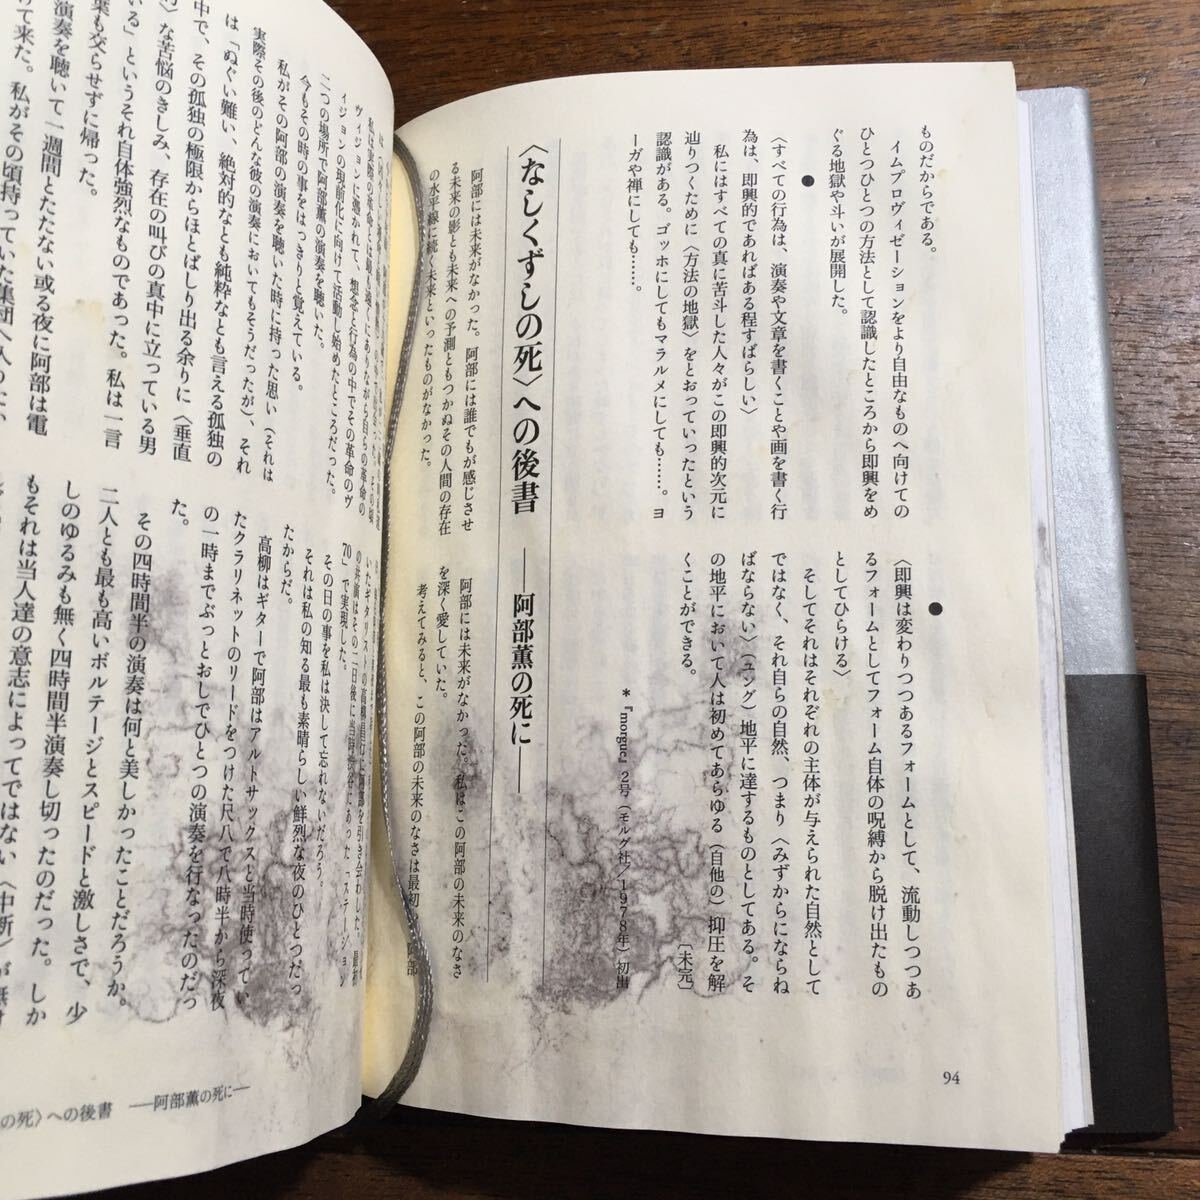 ものだからである。
イムプロヴィゼーションをより自由なものへ向けての
ひとつひとつの方法として認識したところから即興をめ
ぐる地獄や斗いが展開した。
●
〈すべての行為は、演奏や文章を書くことや画を書く行
為は、即興的であればある程すばらしい〉
私にはすべての真に苦斗した人々がこの即興的次元に
辿りつくために〈方法の地獄〉をとおっていったという
認識がある。ゴッホにしてもマラルメにしても……。ヨ
ーガや禅にしても……。
●
〈即興は変わりつつあるフォームとして、流動しつつあ
るフォームとしてフォーム自体の呪縛から脱け出たもの
としてひらける〉
そしてそれはそれぞれの主体が与えられた自然として
ではなく、それ自らの自然、つまり〈みずからにならね
ばならない〉(ユング)地平に達するものとしてある。そ
の地平において人は初めてあらゆる(自他の)抑圧を解
くことができる。
〔未完〕
*『morgue』2号(モルグ社/1978年)初出
〈なしくずしの死〉への後書 ——阿部薫の死に——
阿部には未来がなかった。阿部には誰でもが感じさせ
る未来の影とも未来への予測ともつかぬその人間の存在
の水平線に続く未来といったものがなかった。
阿部には未来がなかった。私はこの阿部の未来のなさ
を深く愛していた。
考えてみると、この阿部の未来のなさは最初
94
私は実際の革命とは最も遠くにありながら自らの革命の
ヴィジョンに憑かれて、想念と行為の中でその革命のヴ
ィジョンの現前化に向けて活動し始めたところだった。
二つの場所で阿部薫の演奏を聴いた。
今もその時の事をはっきりと覚えている。
私がその阿部の演奏を聴いた時に持った思い(それは
実際その後のどんな彼の演奏においてもそうだったが)、それ
は「ぬぐい難い、絶対的なとも純粋なとも言える孤独の
中で、その孤独の極限からほとばしり出る余りに〈垂直
な苦悩のきしみ、存在の叫びの真中に立っている男
いる」というそれ自体強烈なものであった。私は一言
葉も交らせずに帰った。
演奏を聴いて一週間とたたない或る夜に阿部は電
て来た。私がその頃持っていた集団へ入
いたギタリストの高柳昌行に阿部を引き会わした。最初
の共演はその二日後に当時渋谷にあった「ステーション
70」で実現した。
その日の事を私は決して忘れないだろう。
それは私の知る最も素晴らしい鮮烈な夜のひとつだっ
たからだ。
高柳はギターで阿部はアルトサックスと当時使ってい
たクラリネットのリードをつけた尺八で八時半から深夜
の一時までぶっとおしでひとつの演奏を行なったのだっ
た。
その四時間半の演奏は何と美しかったことだろうか。
二人とも最も高いボルテージとスピードと激しさで、少
しのゆるみも無く四時間半演奏し切ったのだった。しか
もそれは当人達の意志によってではない〈中断〉が無け
の死〉への後書 ——阿部薫の死に——